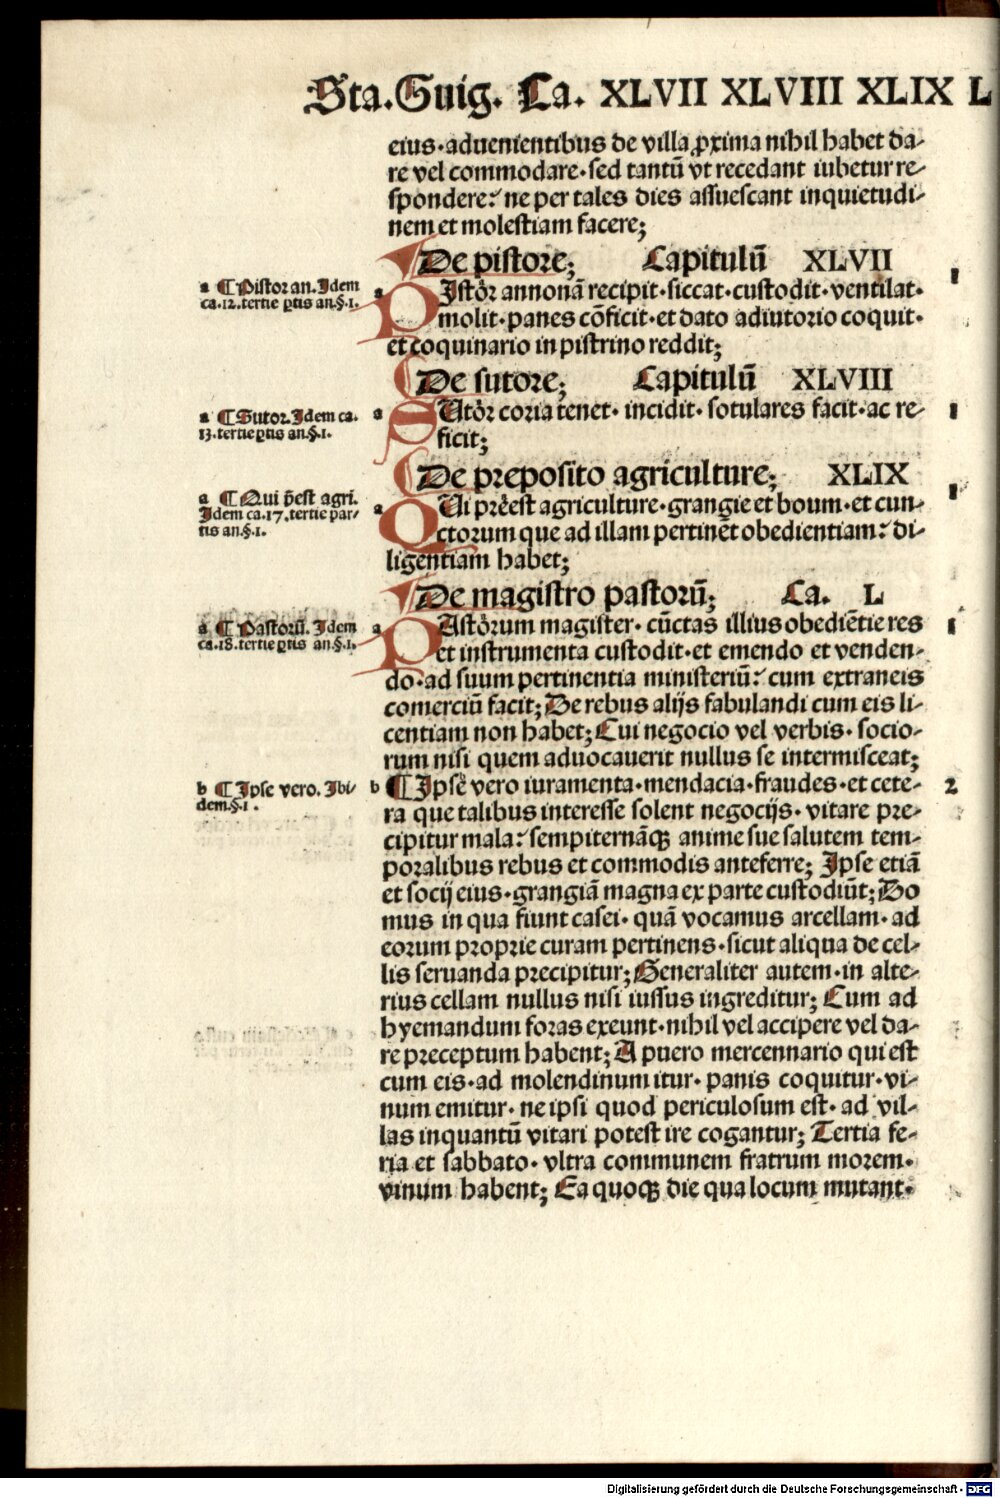 Sta. Guig. Ca. XLVII XLVIII XLIX L
eius·aduenientibus de villa ꝓxima nihil habet da-
re vel commodare·sed tantū vt recedant iubetur re-
spondere: ne per tales dies assuescant inquietudi-
nem et molestiam facere;
De pistore; Capitulū XLVII
a ¶ Pistor an. Idem
ca.12. tertie ꝑtis an.§.1.
a PIstor annonā recipit·siccat·custodit·ventilat·
molit·panes cōficit·et dato adiutorio coquit·
et coquinario in pistrino reddit;
1
De sutore; Capitulū XLVIII
a ¶ Sutor. Idem ca.
13. tertie ꝑtis an.§.1.
a SUtor coria tenet· incidit· sotulares facit·ac re-
ficit;
1
De preposito agriculture; XLIX
a ¶ Qui p̄est agri.
Idem ca.17. tertie par-
tis an.§.1.
a QUi preest agriculture·grangie et boum·et cun-
ctorum que ad illam pertinēt obedientiam: di-
ligentiam habet;
1
De magistro pastorū; Ca. L
a ¶ Pastorū. Idem
ca.18. tertie ꝑtis an.§.1.
a PAstorum magister· cūctas illius obediētie res
et instrumenta custodit·et emendo et venden-
do·ad suum pertinentia ministeriū: cum extraneis
comerciū facit; De rebus alijs fabulandi cum eis li-
centiam non habet; Cui negocio vel verbis· socio-
rum nisi quem aduocauerit nullus se intermisceat;
1
b ¶ Ipse vero. Ibi-
dem.§.1.
b ¶ Ipse vero iuramenta·mendacia·fraudes·et cete-
ra que talibus interesse solent negocijs· vitare pre-
cipitur mala: sempiternāqꝫ anime sue salutem tem-
poralibus rebus et commodis anteferre; Ipse etiā
et socij eius·grangiā magna ex parte custodiūt; Do
mus in qua fiunt casei· quā vocamus arcellam· ad
eorum proprie curam pertinens·sicut aliqua de cel-
lis seruanda precipitur; Generaliter autem·in alte-
rius cellam nullus nisi iussus ingreditur; Cum ad
hyemandum foras exeunt·nihil vel accipere vel da-
re preceptum habent; A puero mercennario qui est
cum eis·ad molendinum itur· panis coquitur·vi-
num emitur· ne ipsi quod periculosum est· ad vil-
las inquantū vitari potest ire cogantur; Tertia fe-
ria et sabbato· vltra communem fratrum morem·
vinum habent; Ea quoqꝫ die qua locum mutant·
2
Digitalisierung gefördert durch die Deutsche Forschungsgemeinschaft - DFG